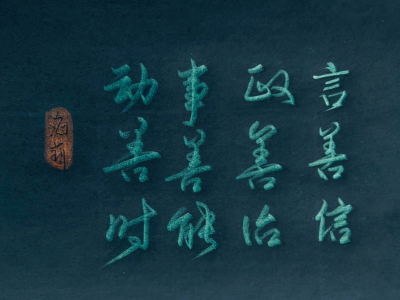 言善信
政善治
事善能
动善时